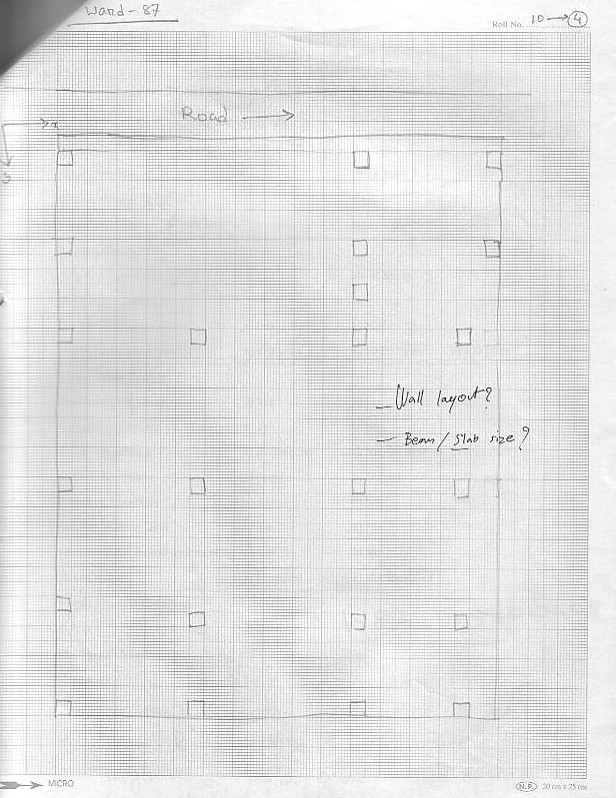 Ward - 87
Roll No. 10 → 4
Road →
x
y
- Wall layout?
- Beam / Slab size?
MICRO
N.P. 20 cm x 25 cm